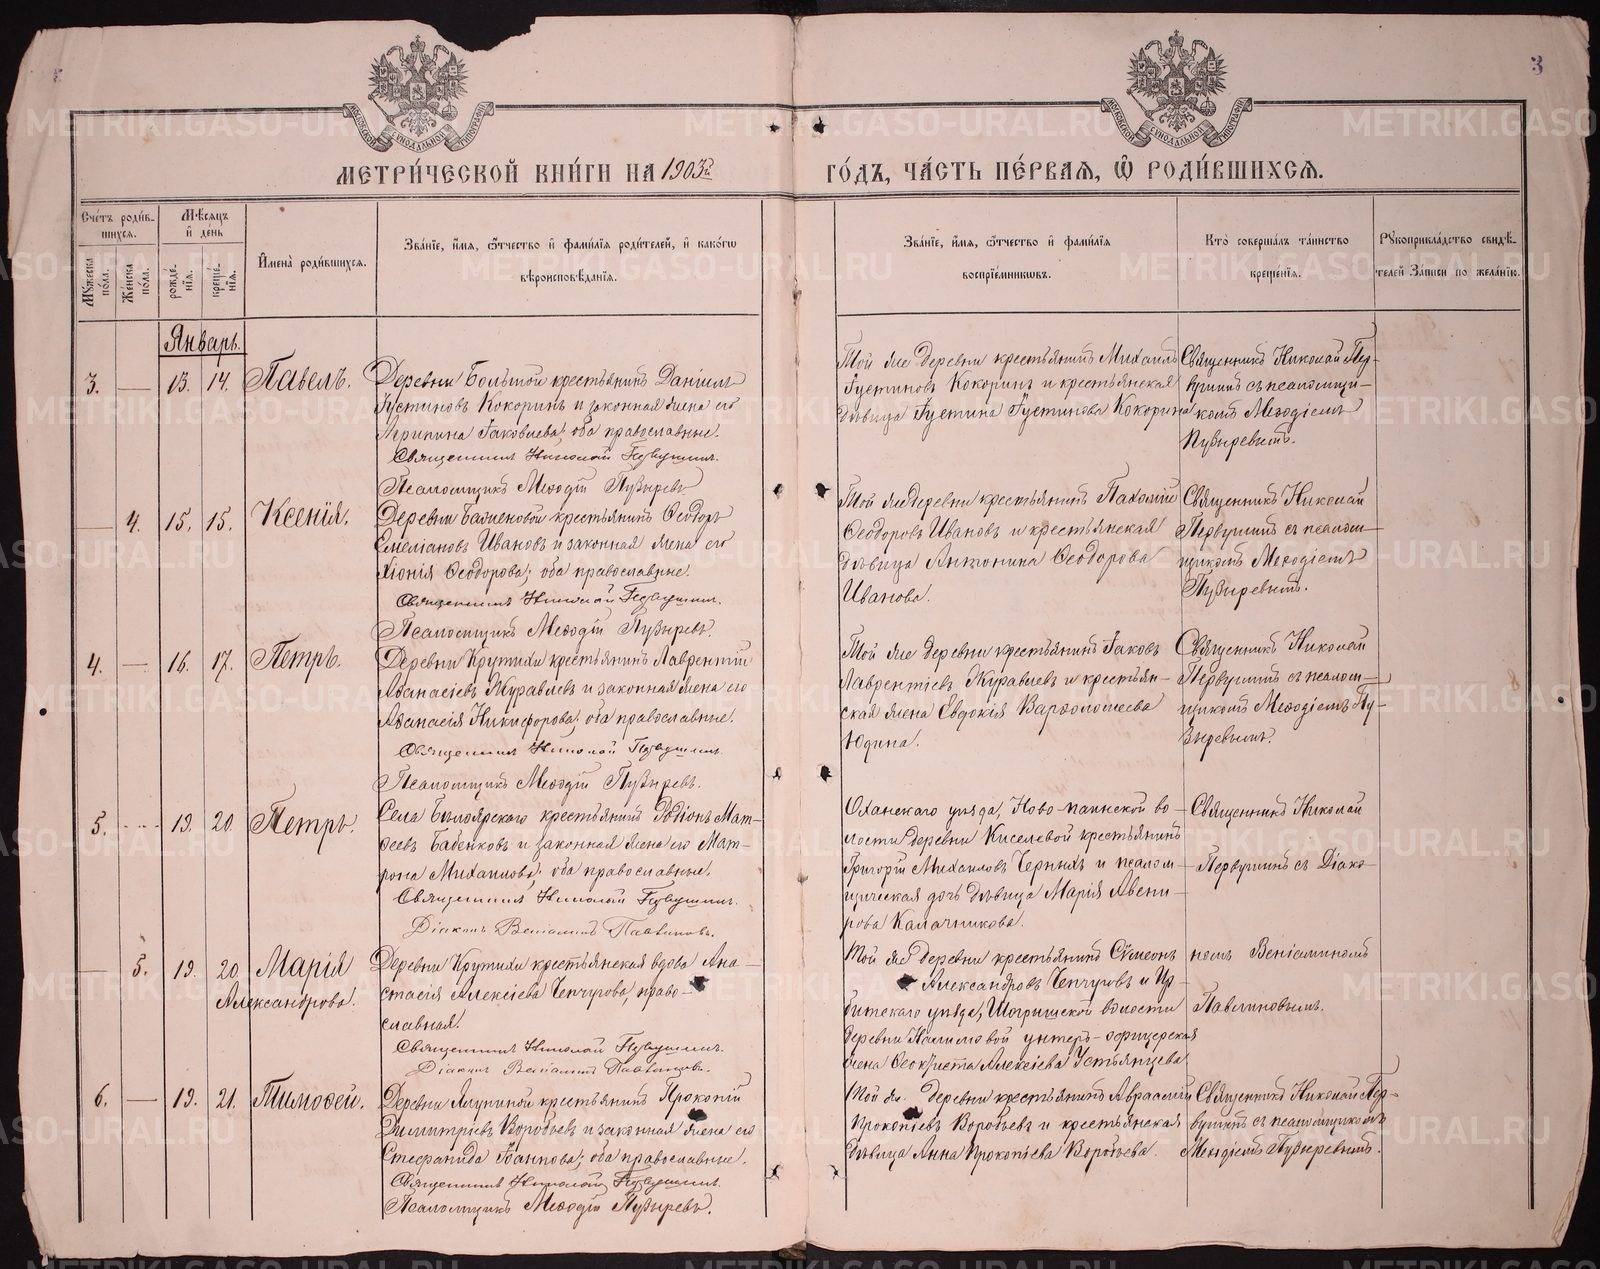 3
МОСКОВСКОЙ СѴНОДАЛЬНОЙ ТИПОГРАФІИ
МОСКОВСКОЙ СѴНОДАЛЬНОЙ ТИПОГРАФІИ
МЕТРИ́ЧЕСКОЙ КНИ́ГИ НА 1903й ГО́ДЪ, ЧА́СТЬ ПЕ́РВАѦ, Ѡ҆ РОДИ́ВШИХСѦ.
Сче́тъ роди́в-
шихсѧ.
Мꙋ́жеска
по́ла.
Же́нска
по́ла.
Мѣ́сѧцъ
и҆ де́нь
рожде́-
нїѧ.
креще́-
нїѧ.
И҆мена̀ роди́вшихсѧ.
Зва́нїе, и҆́мѧ, ѻ҆́тчество и҆ фами́лїѧ роди́телей, и҆ како́гѡ
вѣроисповѣ́данїѧ.
Зва́нїе, и҆́мѧ, ѻ҆́тчество и҆ фами́лїѧ
воспрїе́мниковъ.
Кто̀ соверша́лъ та́инство
креще́нїѧ.
Рꙋкоприкла́дство свидѣ́-
телей за́писи по жела́нїю.
Январь.
3.
—
13.
14.
Павелъ.
Деревни Большой крестьянинъ Даніилъ
Іустиновъ Кокоринъ и законная жена его
Агрипина Іаковлева; оба православные.
Священникъ Николай Первушинъ.
Псаломщикъ Меѳодій Пузыревъ
Той же деревни крестьянинъ Михаилъ
Іустиновъ Кокоринъ и крестьянская
дѣвица Іустина Іустинова Кокорина
Священникъ Николай Пер-
вушинъ съ псаломщи-
комъ Меѳодіемъ
Пузыревымъ.
—
4.
15.
15.
Ксенія.
Деревни Баженовой крестьянинъ Ѳеодоръ
Емеліановъ Ивановъ и законная жена его
Хіонія Ѳеодорова; оба православные.
Священникъ Николай Первушинъ.
Псаломщикъ Меѳодій Пузыревъ.
Той же деревни крестьянинъ Пахомій
Ѳеодоровъ Ивановъ и крестьянская
дѣвица Антонина Ѳеодорова
Иванова.
Священникъ Николай
Первушинъ съ псалом-
щикомъ Меѳодіемъ
Пузыревымъ.
4.
—
16.
17.
Петръ.
Деревни Крутихи крестьянинъ Лаврентій
Аѳанасіевъ Журавлевъ и законная жена его
Аѳанасія Никифорова; оба православные.
Священникъ Николай Первушинъ.
Псаломщикъ Меѳодій Пузыревъ.
Той же деревни крестьянинъ Іаковъ
Лаврентіевъ Журавлевъ и крестьян-
ская жена Евдокія Варѳоломеева
Юдина.
Священникъ Николай
Первушинъ съ псалом-
щикомъ Меѳодіемъ Пу-
зыревымъ.
5.
—
19.
20.
Петръ.
Села Бѣлоярскаго крестьянинъ Мат-
ѳеевъ Бабенковъ и законная жена его Мат-
рона Михаилова; оба православные.
Священникъ Николай Первушинъ.
Діаконъ Веніаминъ Павлиновъ.
Оханскаго уѣзда, Ново-паинской во-
лости деревни Киселевой крестьянинъ
Григорій Михаиловъ Черныхъ и псалом-
щическая дочь дѣвица Марія Авени-
рова Калачникова.
Священникъ Николай
Первушинъ съ Діако-
—
5.
19.
20
Марія
Александрова.
Деревни Крутихи крестьянская вдова Ана-
стасія Алексіева Чепчугова, право-
славная.
Священникъ Николай Первушинъ.
Діаконъ Веніаминъ Павлиновъ.
Той же деревни крестьянинъ Сѵмеонъ
Александровъ Чепчуговъ и Ир-
битскаго уѣзда, Шогришской волости
деревни унтеръ-офицерская
жена Ѳеоктиста Алексіева Устьянцева
номъ Веніаминомъ
Павлиновымъ.
6.
—
19.
21.
Тимоѳей.
Деревни крестьянинъ Прокопій
Димитріевъ Воробьевъ и законная жена его
Стефанида Іоаннова; оба православные.
Священникъ Николай Первушинъ.
Псаломщикъ Меѳодій Пузыревъ.
Той же деревни крестьянинъ Авраамій
Прокопіевъ Воробьевъ и крестьянская
дѣвица Анна Прокопіева Воробьева.
Священникъ Николай Пер-
вушинъ съ псаломщикомъ
Меѳодіемъ Пузыревымъ.
METRIKI.GASO-URAL.RU